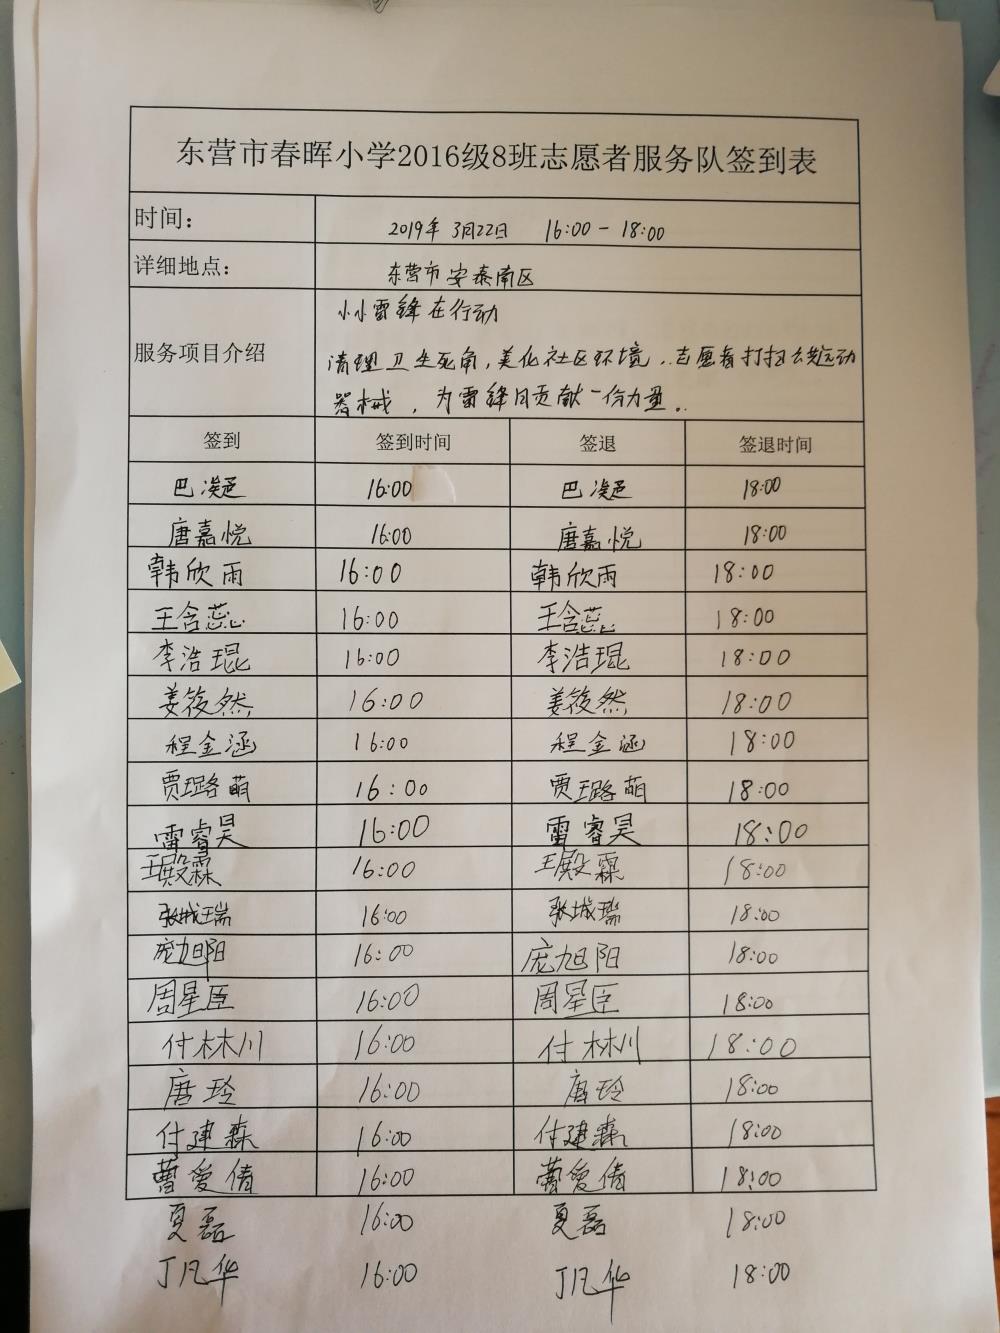 东营市春晖小学2016级8班志愿者服务队签到表
时间： 2019年3月22日 16:00-18:00
详细地点： 东营市安泰南区
小小雷锋在行动
服务项目介绍 清理卫生死角,美化社区环境,志愿者打扫公共运动
器械,为雷锋月贡献一份力量。
签到 签到时间 签退 签退时间
巴凝 16:00 巴凝 18:00
唐嘉悦 16:00 唐嘉悦 18:00
韩欣雨 16:00 韩欣雨 18:00
王含蕊 16:00 王含蕊 18:00
李浩琨 16:00 李浩琨 18:00
姜筱然 16:00 姜筱然 18:00
程金涵 16:00 程金涵 18:00
贾璐萌 16:00 贾璐萌 18:00
雷睿昊 16:00 雷睿昊 18:00
王殿霖 16:00 王殿霖 18:00
张城瑞 16:00 张城瑞 18:00
庞旭阳 16:00 庞旭阳 18:00
周星臣 16:00 周星臣 18:00
付林川 16:00 付林川 18:00
唐玲 16:00 唐玲 18:00
付建森 16:00 付建森 18:00
曹爱倩 16:00 曹爱倩 18:00
夏磊 16:00 夏磊 18:00
丁凡华 16:00 丁凡华 18:00